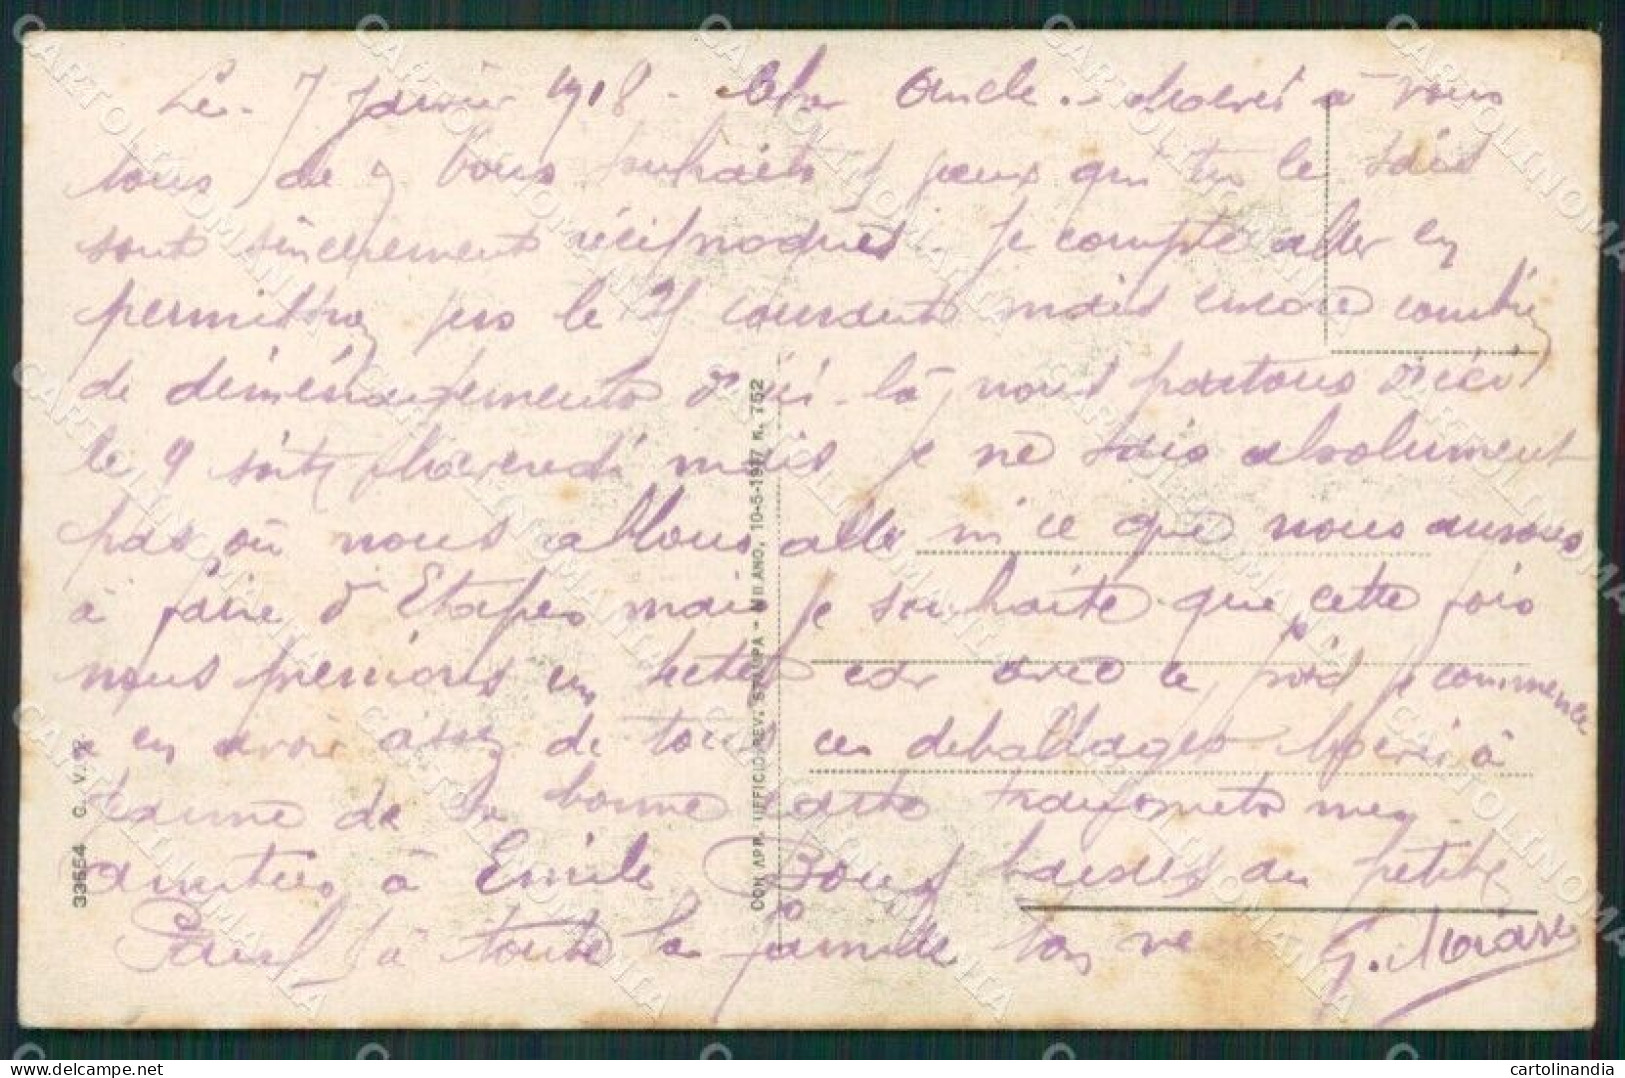 Le 7 Janvier 1918 - Cher Oncle. Merci à vous
tous de vous souhaits je peux que tu le sais
sont sincèrement réciproques. Je compte aller en
permission le 25 courant mais encore combien
de déménagements d'ici-là, nous partons d'ici
le 9 soit Mercredi mais je ne sais absolument
pas où nous allons aller ni ce que nous aurons
à faire d'Etapes mais je souhaite que cette fois
nous prenions un car avec ce froid je commence
à en avoir assez de tous ces deballages Merci à
de sa bonne carte
amitiés à Emile, Doux baisers au petit
Paul à toute la famille ton ne
33554 G. V. M.
CON APP. UFFICIO REV. STAMPA - MILANO, 10-5-1917 N. 752
CARTOLINOMANIA
cartolinandia